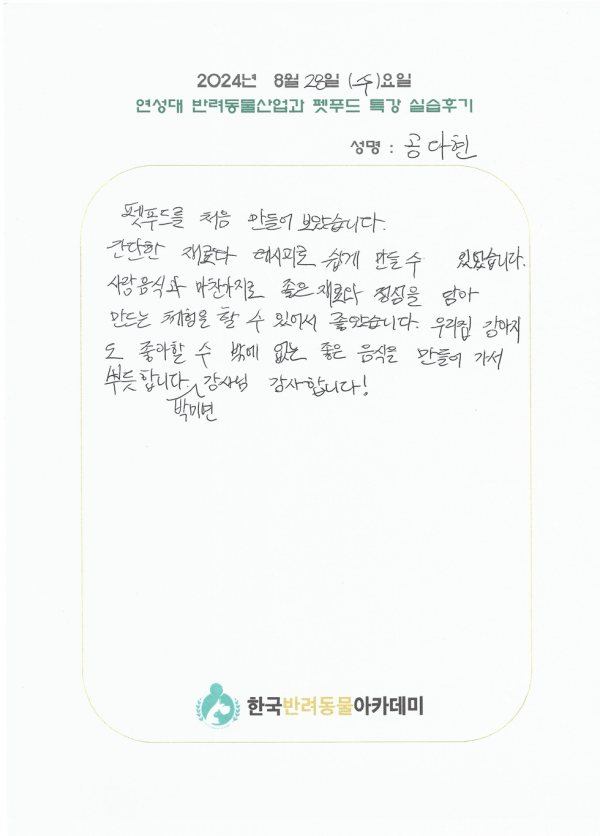 2024년 8월 28일 (수)요일
연성대 반려동물산업과 펫푸드 특강 실습후기
성명 : 공다현
펫푸드를 처음 만들어 보았습니다.
간단한 재료와 레시피로 쉽게 만들 수 있었습니다.
사람음식과 마찬가지로 좋은 재료와 정성을 담아
만드는 체험을 할 수 있어서 좋았습니다. 우리집 강아지
도 좋아할 수 밖에 없는 좋은 음식을 만들어 가서
뿌듯합니다. 강사님 감사합니다!
박미연
한국반려동물아카데미